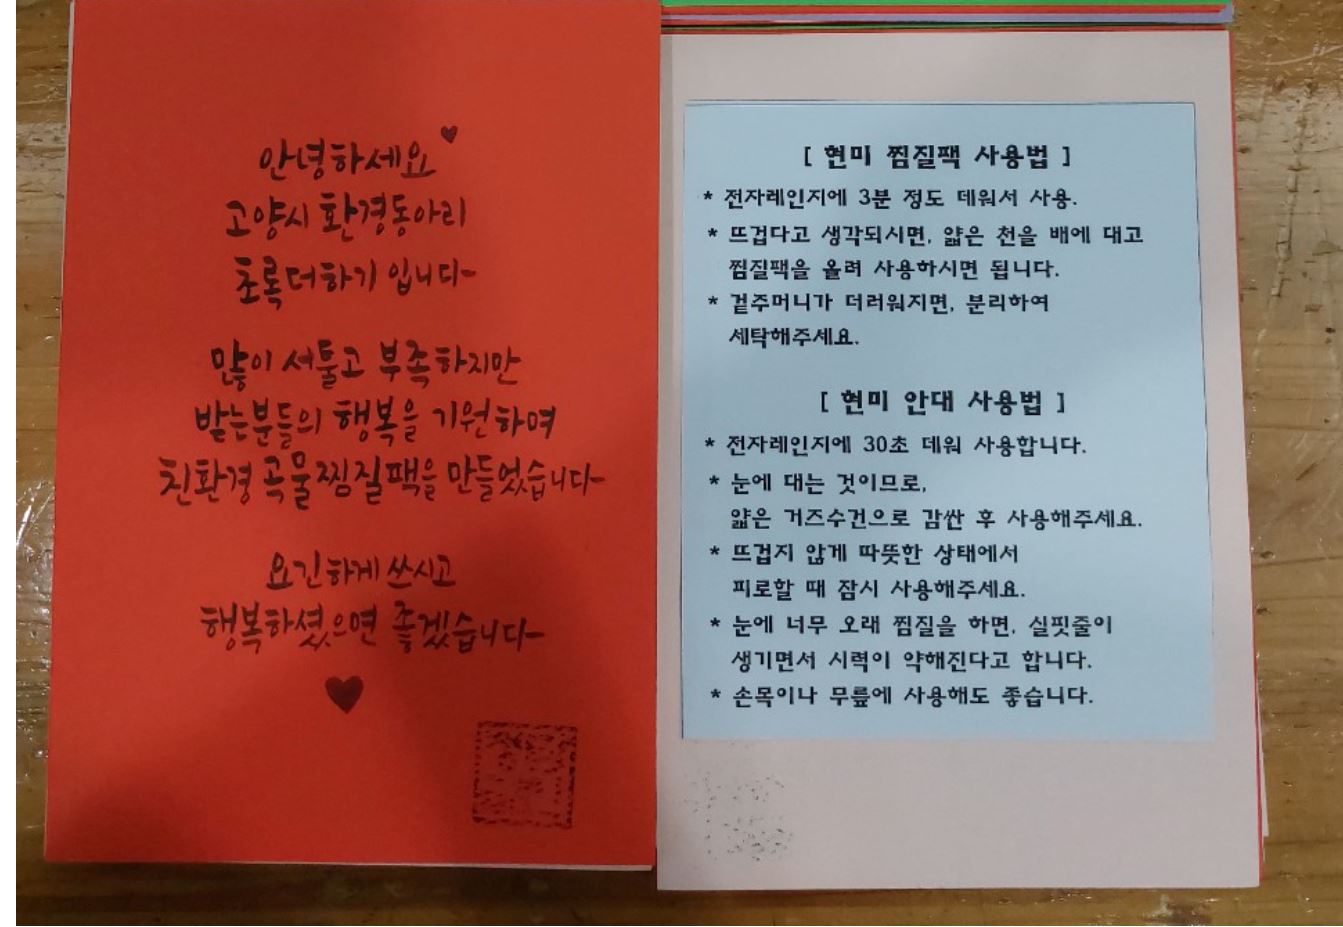 안녕하세요♥
고양시 환경동아리
초록더하기 입니다~
많이 서툴고 부족하지만
받는분들의 행복을 기원하며
친환경 곡물찜질팩을 만들었습니다~
요긴하게 쓰시고
행복하셨으면 좋겠습니다~
♥
[ 현미 찜질팩 사용법 ]
* 전자레인지에 3분 정도 데워서 사용.
* 뜨겁다고 생각되시면, 얇은 천을 배에 대고
찜질팩을 올려 사용하시면 됩니다.
* 겉주머니가 더러워지면, 분리하여
세탁해주세요.
[ 현미 안대 사용법 ]
* 전자레인지에 30초 데워 사용합니다.
* 눈에 대는 것이므로,
얇은 거즈수건으로 감싼 후 사용해주세요.
* 뜨겁지 않게 따뜻한 상태에서
피로할 때 잠시 사용해주세요.
* 눈에 너무 오래 찜질을 하면, 실핏줄이
생기면서 시력이 약해진다고 합니다.
* 손목이나 무릎에 사용해도 좋습니다.